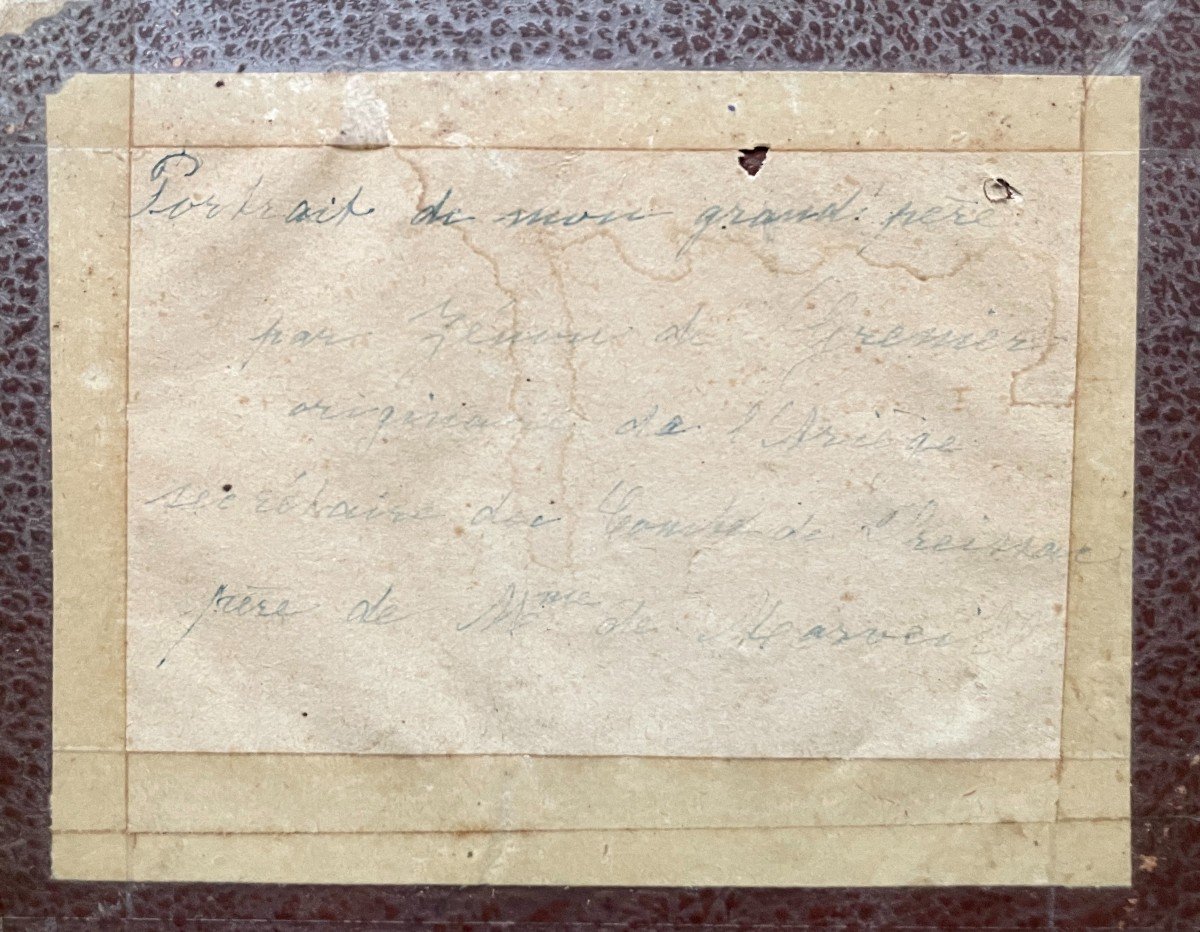 Portrait de mon grand'père
par Zénon de Grenier
originaire de l'Ariège
secrétaire du Comte de Preissac
père de Mme de Marveil